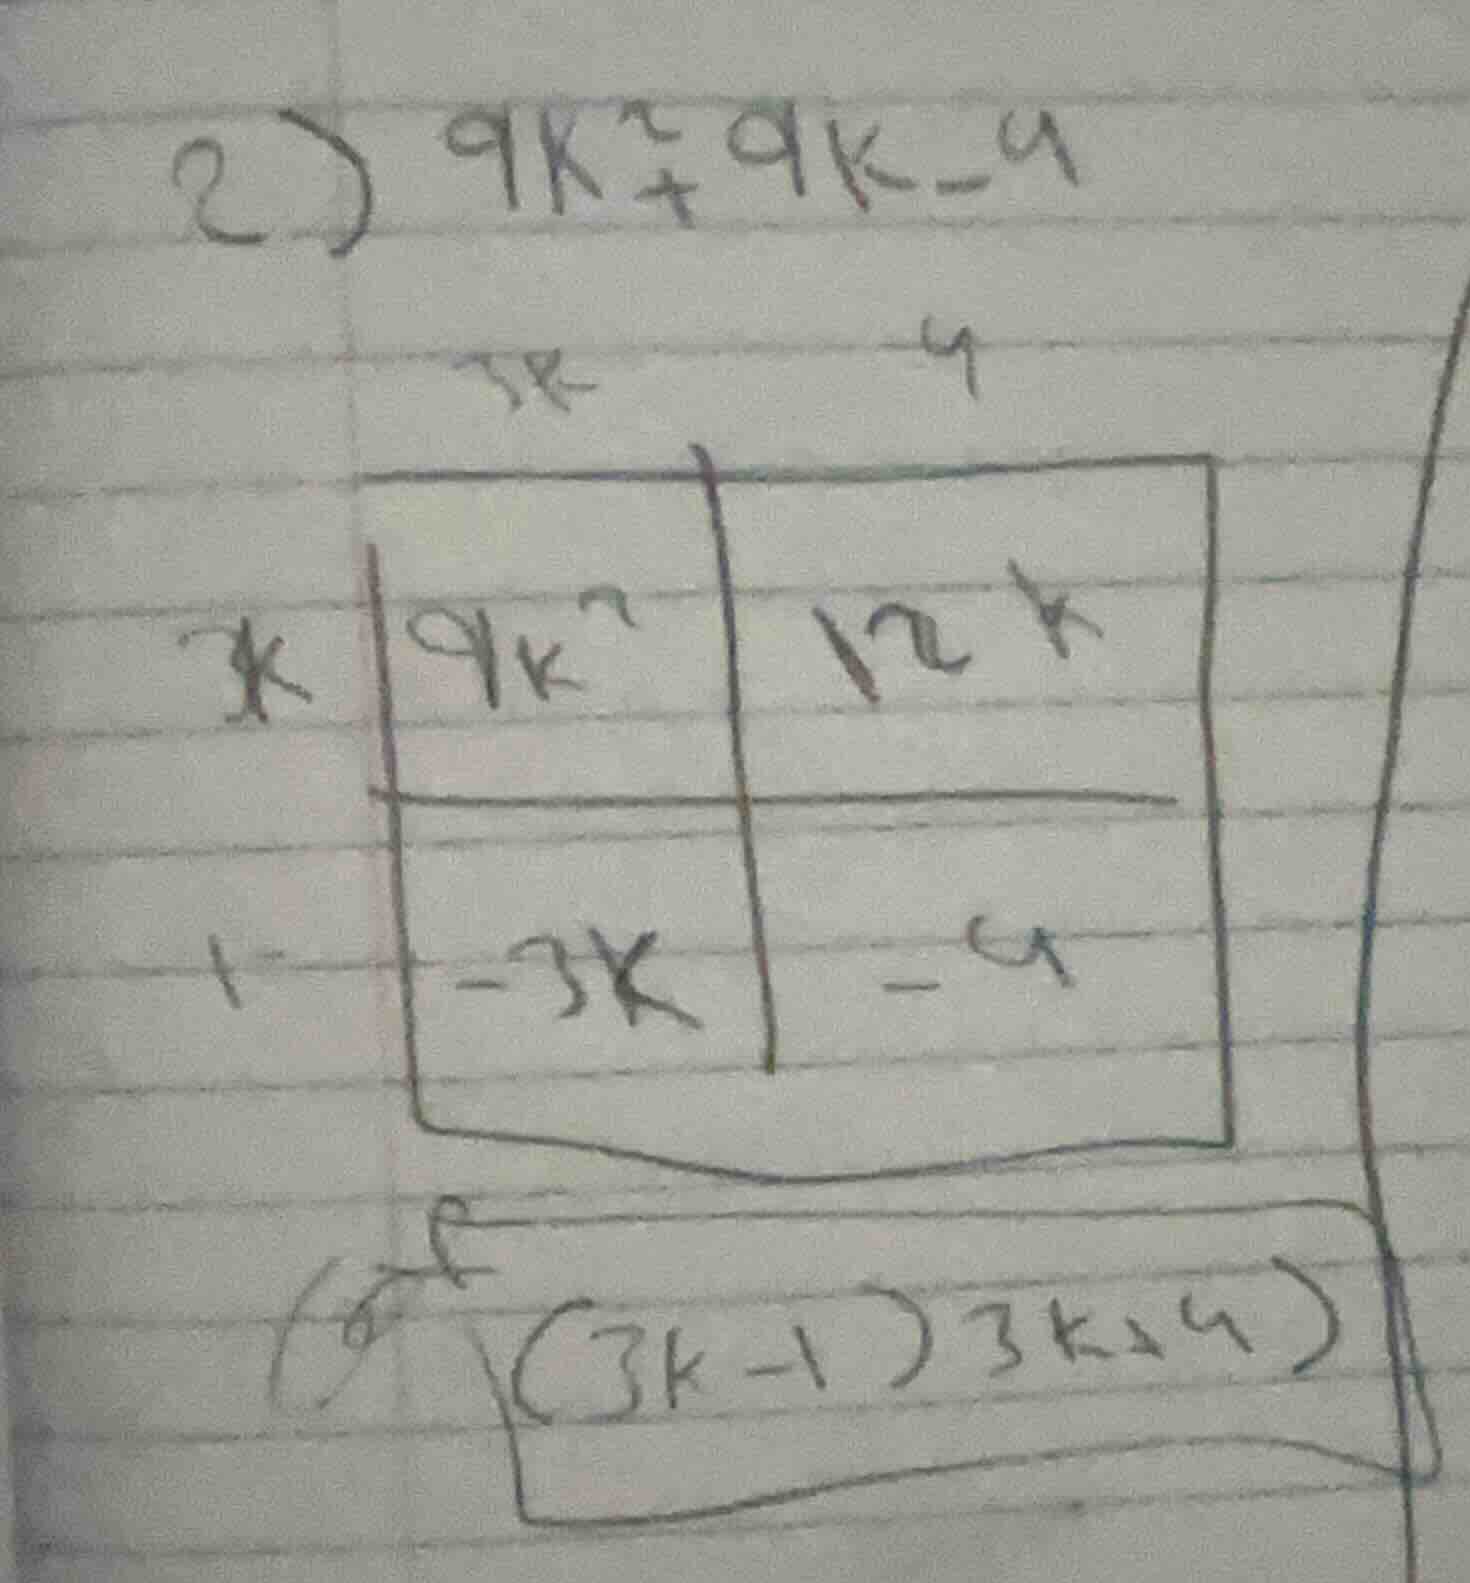 2) 9k²+9k-4
3k 4
3k 9k² 12k
1 -3k -4
(3k-1)3k+4)